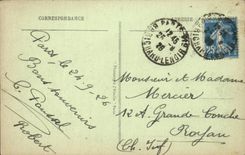 CORRESPONDANCE
ADRESSE
Paris le 24.9.26
Bons souvenirs
Robert
Monsieur et Madame
Mercier
12 A. Grande Conche
Royan
(Ch. Inf)